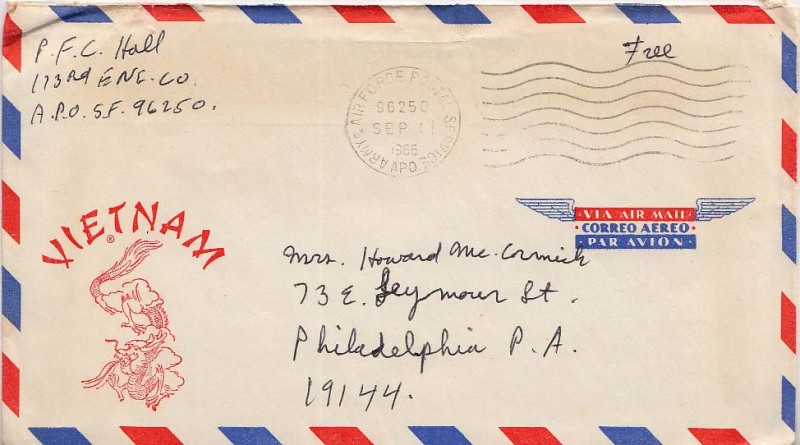 P.F.C. Hall
173RD ENG. CO.
A.P.O. S.F. 96250.
ARMY & AIR FORCE POSTAL SERVICE
96250
SEP 11
1966
APO
Free
VIETNAM
®
VIA AIR MAIL
CORREO AEREO
PAR AVION
Mrs. Howard Mc. Cormick
73 E. Seymour St.
Philadelphia P.A.
19144.